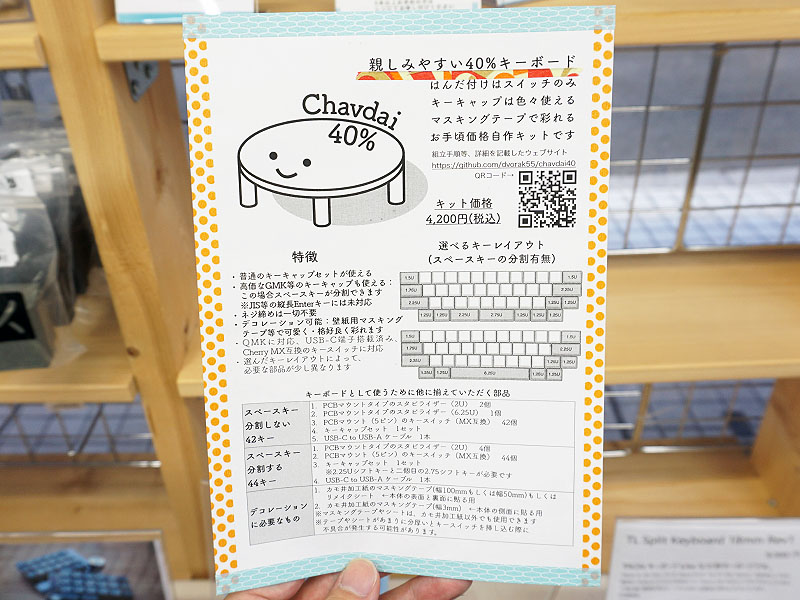 親しみやすい40%キーボード
はんだ付けはスイッチのみ
キーキャップは色々使える
マスキングテープで彩れる
お手頃価格自作キットです
組立手順等、詳細を記載したウェブサイト
https://github.com/dvorak55/chavdai40
QRコード→
Chavdai
40%
キット価格
4,200円(税込)
特徴
・普通のキーキャップセットが使える
・高価なGMK等のキーキャップも使える：
この場合スペースキーが分割できます
※JIS等の縦長Enterキーには未対応
・ネジ締めは一切不要
・デコレーション可能：壁紙用マスキング
テープ等で可愛く・格好良く彩れます
・QMKに対応、USB-C端子搭載済み、
Cherry MX互換のキースイッチに対応
・選んだキーレイアウトによって、
必要な部品が少し異なります
選べるキーレイアウト
(スペースキーの分割有無)
1.5U 1.5U
1.75U 2.25U
2.25U 1.25U 1.25U
1.25U 1.25U 2.25U 2.75U 1.25U 1.25U 1.25U
1.5U 1.5U
1.75U 2.25U
2.25U 1.25U 1.25U
1.25U 1.25U 6.25U 1.25U 1.25U
キーボードとして使うために他に揃えていただく部品
スペースキー
分割しない
42キー
1. PCBマウントタイプのスタビライザー（2U） 2個
2. PCBマウントタイプのスタビライザー（6.25U） 1個
3. PCBマウント（5ピン）のキースイッチ（MX互換） 42個
4. キーキャップセット 1セット
5. USB-C to USB-A ケーブル 1本
スペースキー
分割する
44キー
1. PCBマウントタイプのスタビライザー（2U） 4個
2. PCBマウント（5ピン）のキースイッチ（MX互換） 44個
3. キーキャップセット 1セット
※2.25Uシフトキーと二個目の2.75シフトキーが必要です
4. USB-C to USB-A ケーブル 1本
デコレーション
に必要なもの
1. カモ井加工紙のマスキングテープ(幅100mmもしくは幅50mm)もしくは
リメイクシート ←本体の表面と裏面に貼る用
2. カモ井加工紙のマスキングテープ(幅3mm) ←本体の側面に貼る用
※マスキングテープやシートは、カモ井加工紙以外でも使用できます
※テープやシートがあまりに分厚いとキースイッチを挿し込む際に
不具合が発生する可能性があります。
TL Split Keyboard 18mm Rev1